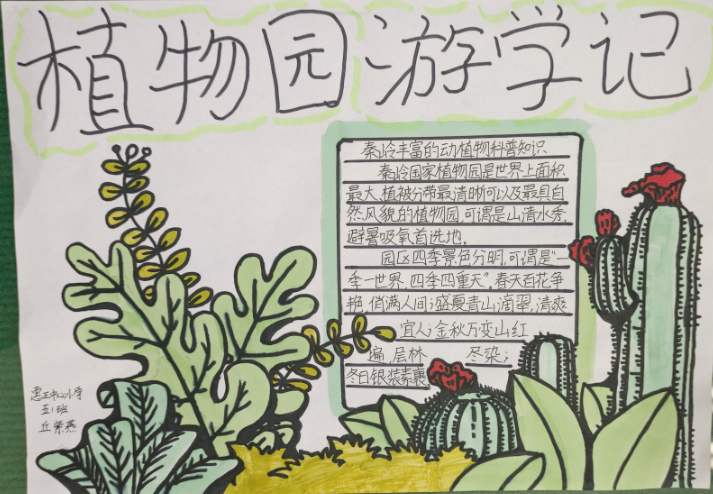 植物园游学记
秦岭丰富的动植物科普知识
秦岭国家植物园是世界上面积
最大,植被分带最清晰可以及最具自
然风貌的植物园,可谓是山清水秀,
避暑吸氧首选地。
园区四季景色分明,可谓是“一
季一世界,四季四重天”,春天百花争
艳,俏满人间;盛夏青山滴翠,清爽
宜人;金秋万变山红
遍,层林 尽染;
冬日银装素裹
中心小学
五1班
丘紫燕